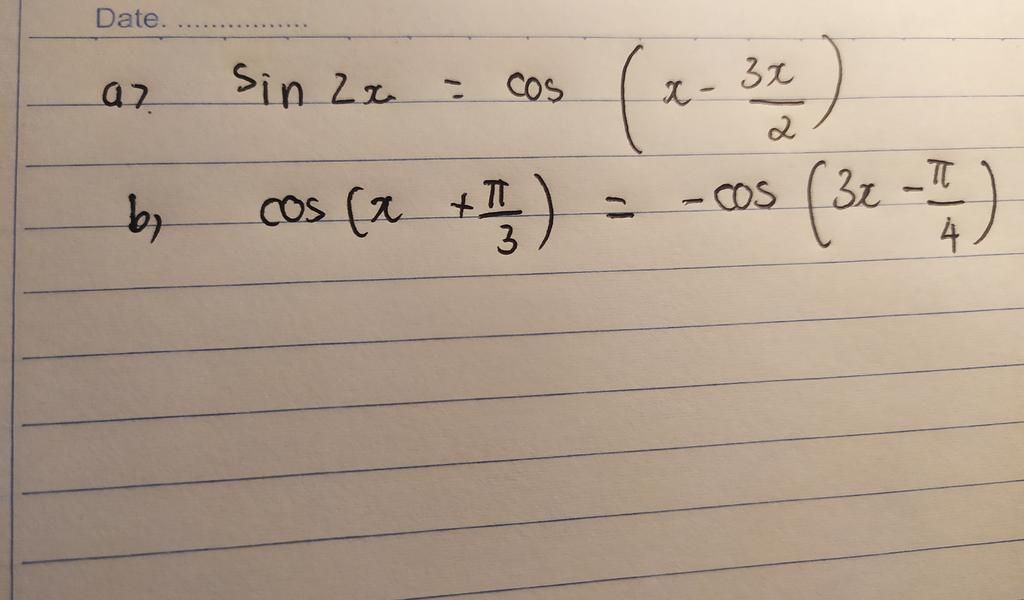 Date. ................
a> sin 2x = cos (x - 3x/2)
b, cos (x + π/3) = -cos (3x - π/4)